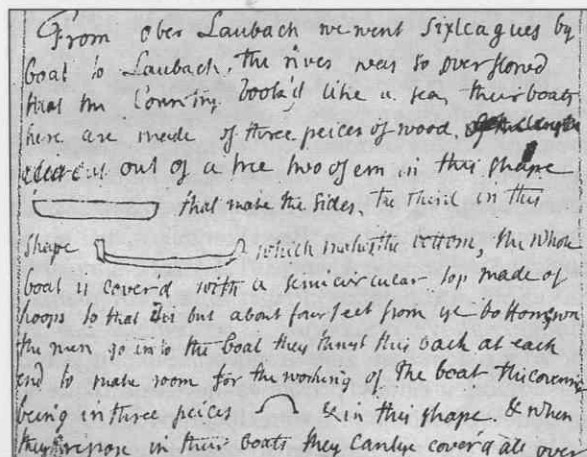 From ober Laubach we went six leagues by
boat to Laubach, the river was so overflowed
that the Country look'd like a sea, their boats
here are made of three peices of wood,
out of a tree two of em in this shape
that make the sides, the third in this
shape which makes the bottom, the whole
boat is cover'd with a semicircular top made of
hoops so that tis but about four feet from ye bottom, when
the men go into the boat they thrust this back at each
end to make room for the working of the boat this covering
being in three peices & in this shape. & when
they repose in their boats they can lye cover'd all over